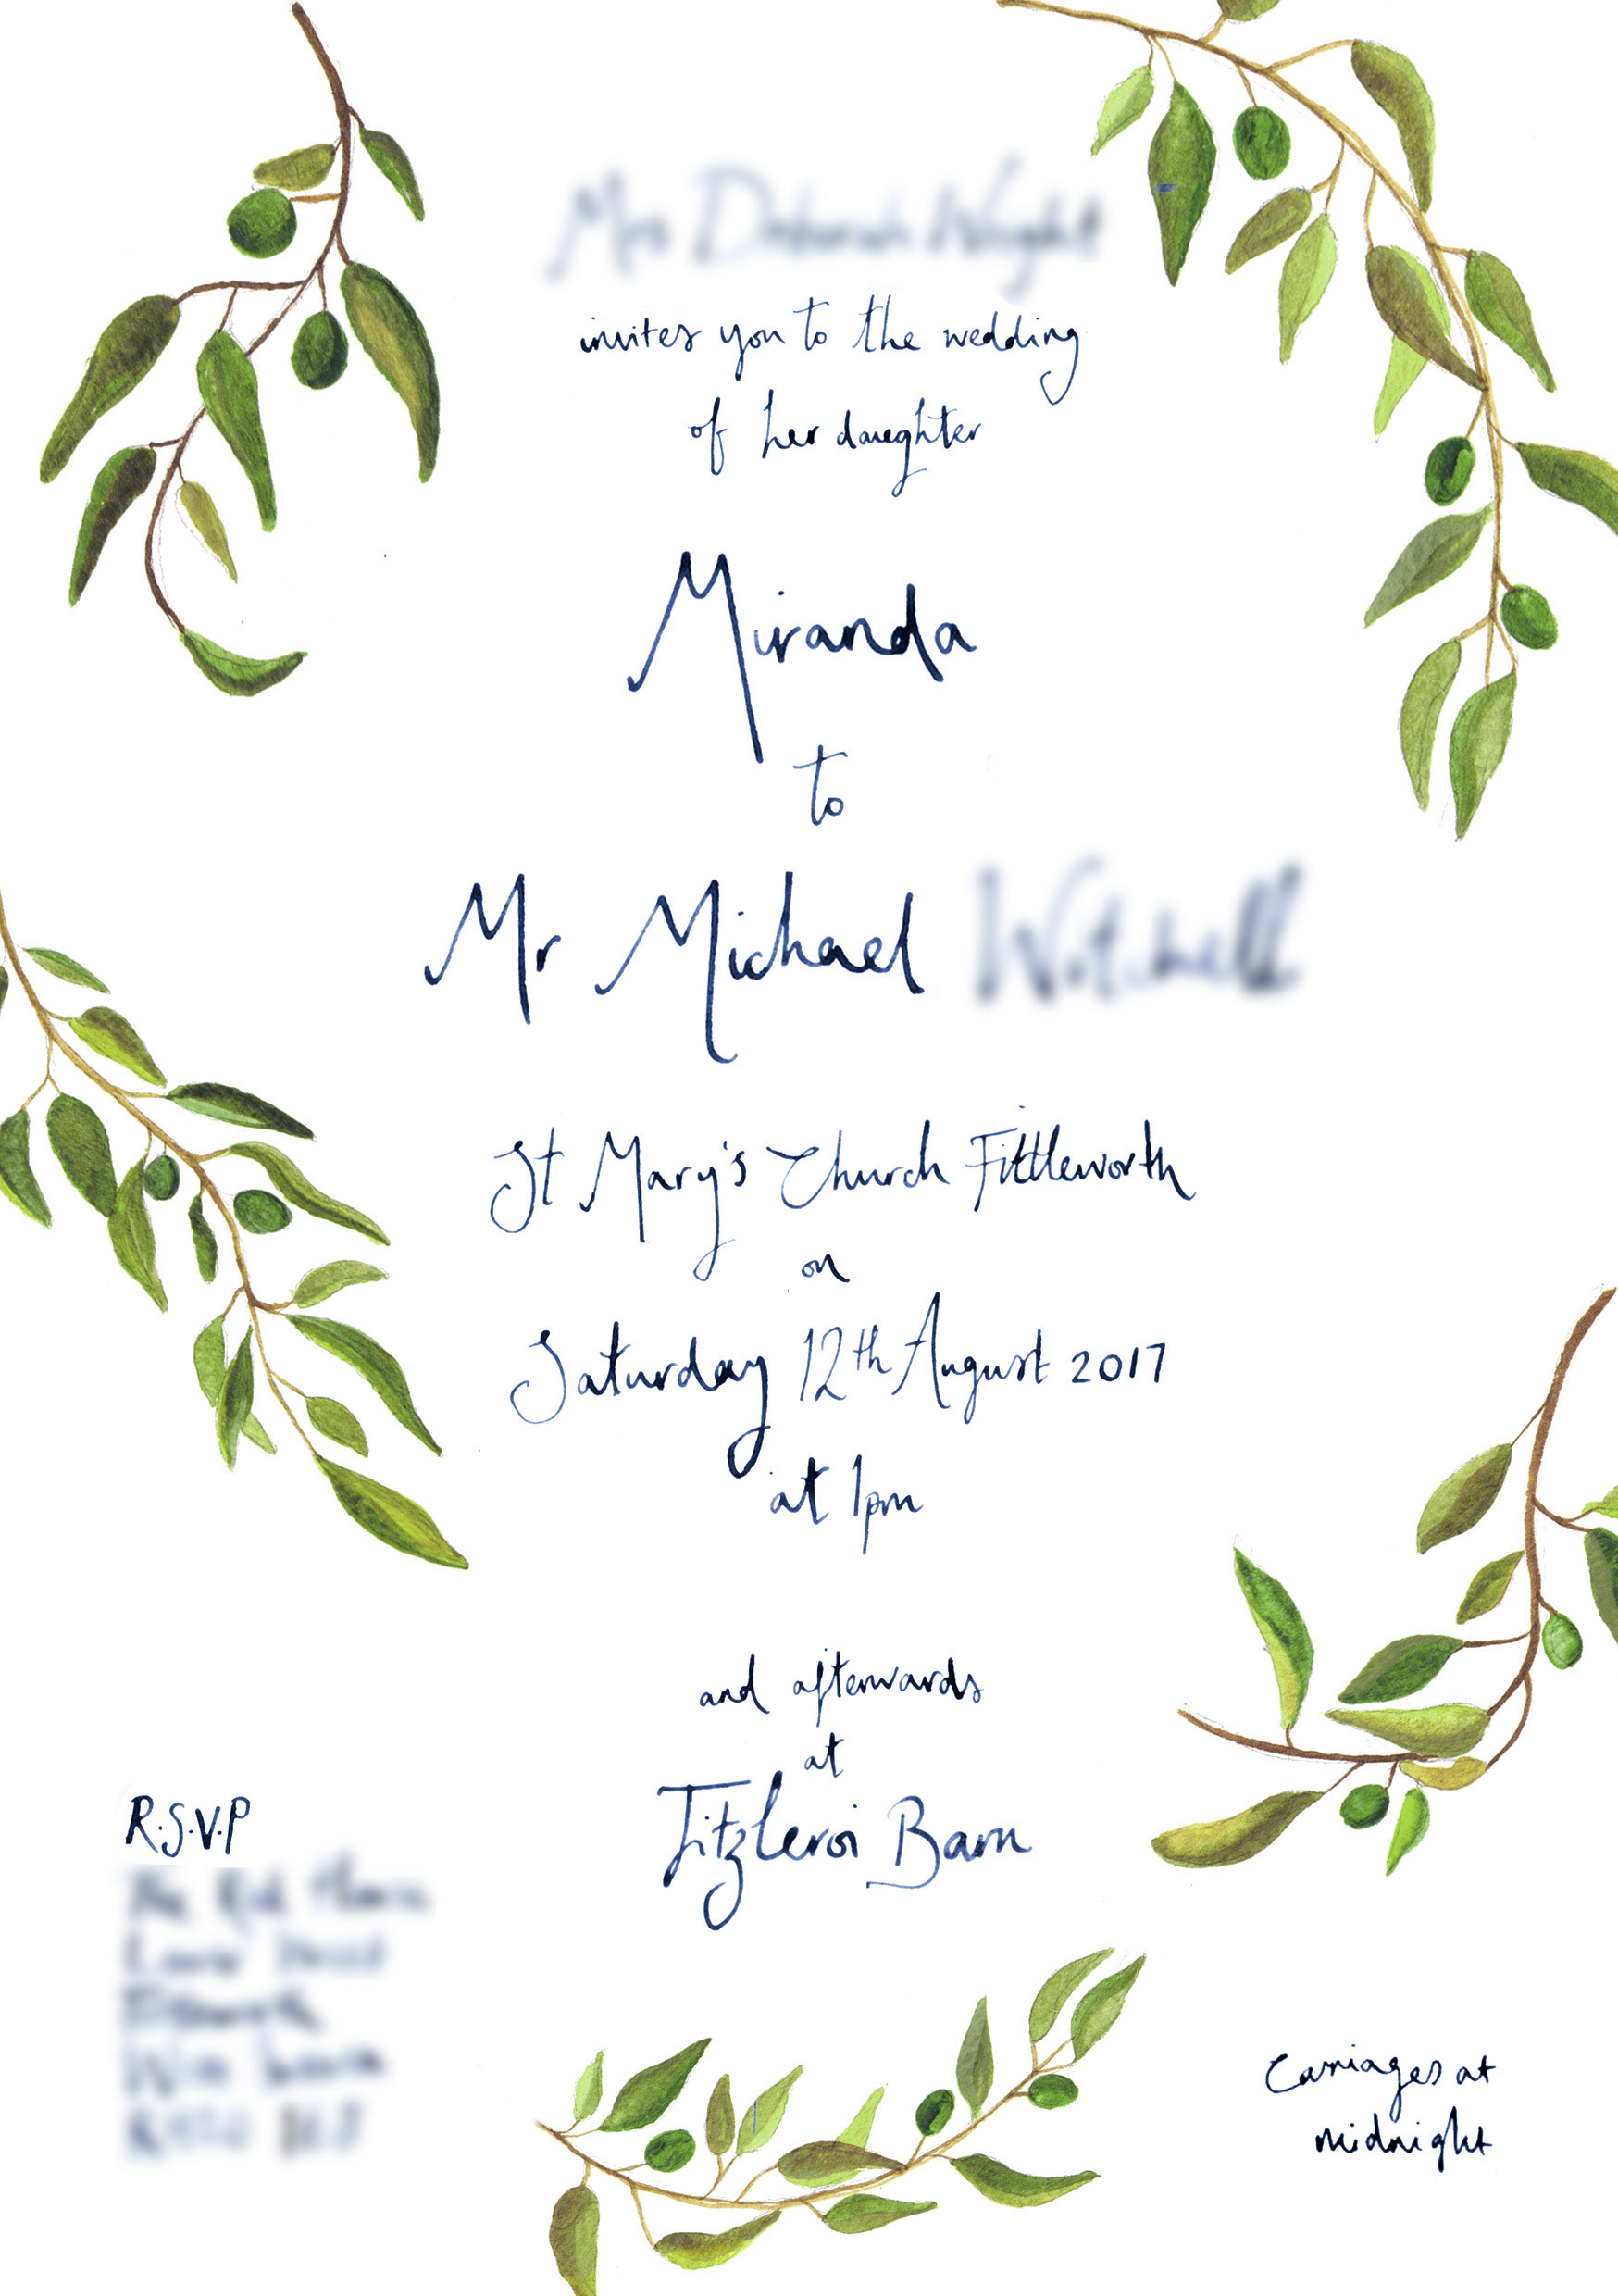 invites you to the wedding
of her daughter
Miranda
to
Mr Michael
St Mary's Church Fittleworth
on
Saturday 12th August 2017
at 1pm
and afterwards
at
Fitzleroi Barn
R.S.V.P
Carriages at
midnight